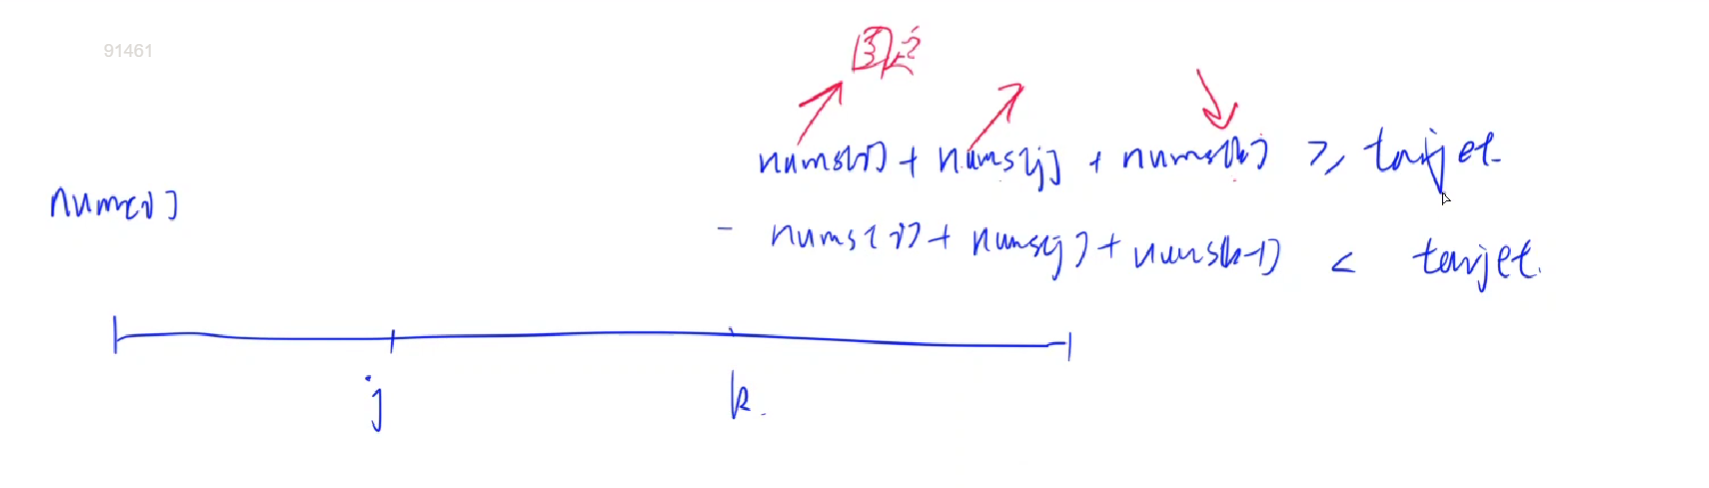 91461
固定
nums[i] + nums[j] + nums[k] >= target.
nums[i]
- nums[i] + nums[j] + nums[k-1] < target.
j
k.